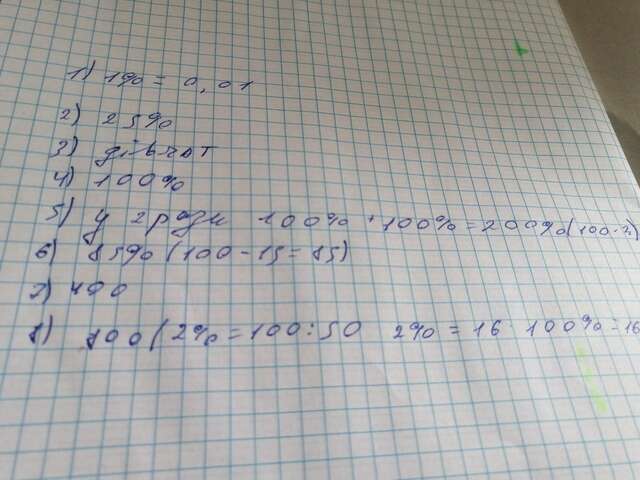 1) 1% = 0,01
2) 25%
3)
4) 100%
5) у 2 рази 100% + 100% = 200% (100·2)
6) 85% (100 - 15 = 85)
7) 400
8) 800 (2% = 100 : 50 2% = 16 100% = 16